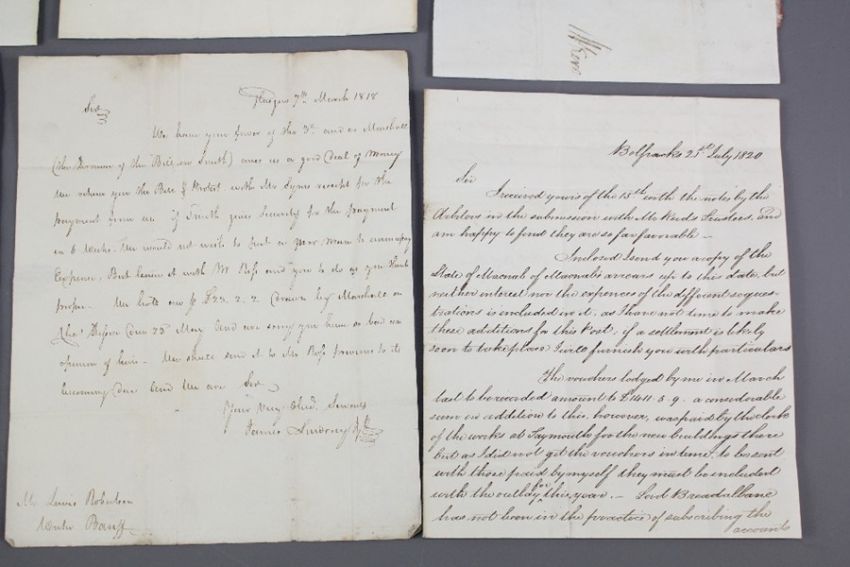 7th March 1818
Sir
We have your favor of the 3rd and as Marshall
(the Drawer of the Bill on Smith) owes us a good deal of Money
we return you the Bill & Protest with Mr receipt for the
payment from us if Smith gives Security for the payment
in 6 Weeks. We would not wish to put a poor Man to unnecessary
Expence, But leave it with Mr Ross and you to do as you think
proper. We hold one p £22.2.2 Drawn by Marshall on
due 22d May And are sorry you have so bad an
opinion of him. We shall send it to Mr Ross previous to its
becoming due And We are Sir
Your Very Obed. Servants
James Lindsay
Mr Lewis Robertson
Writer Banff
Bolfracks 25th July 1820
Sir
I received yours of the 15th with the notes by the
Arbiters in the submission with Mr Reids Trustees, and
am happy to find they are so far favorable -
Inclosed I send you a copy of the
State of Macnab of Macnabs arrears up to this date, but
neither interest nor the expences of the different seques-
trations is included in it, as I have not time to make
these additions for this Post, if a settlement is likely
soon to take place I will furnish you with particulars
The vouchers lodged by me in March
last to be recorded amount to £1411.5.9. a considerable
sum in addition to this, however, was paid by the clerk
of the works at Taymouth for the new buildings there
but as I did not get the vouchers in time to be sent
with those paid by myself they must be included
with the outlay for this year. - Lord Breadalbane
has not been in the practice of subscribing the
accounts